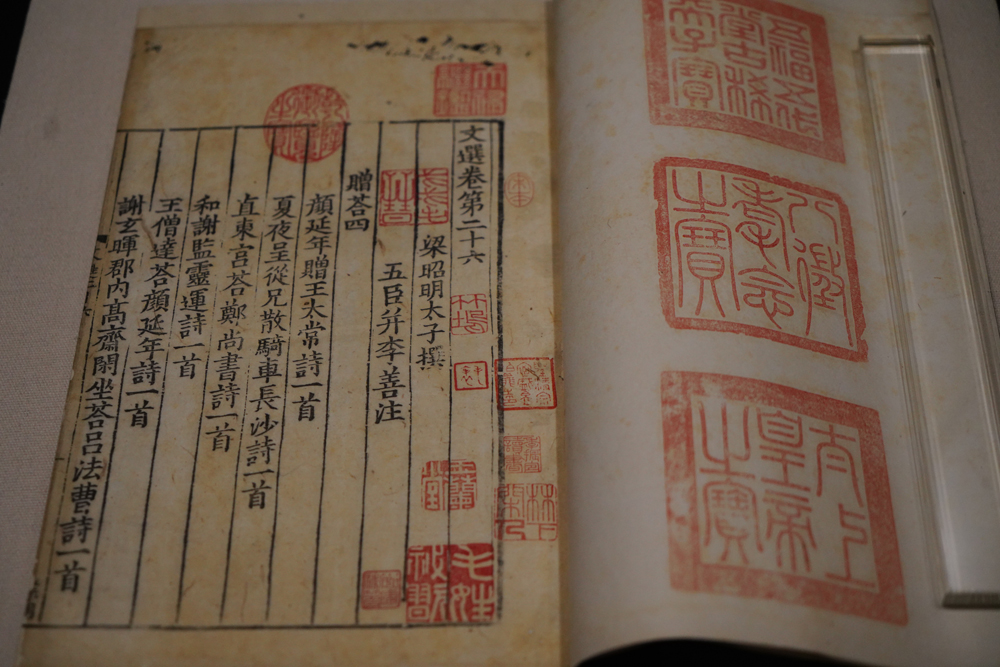 五福五代
堂古稀
天子寶
八徵
耄念
之寶
太上
皇帝
之寶
文選卷第二十六
梁昭明太子撰
五臣并李善注
贈荅四
顔延年贈王太常詩一首
夏夜呈從兄散騎車長沙詩一首
直東宫荅鄭尚書詩一首
和謝監靈運詩一首
王僧達荅顔延年詩一首
謝玄暉郡内髙齋閑坐荅吕法曹詩一首
宋本
竹塢